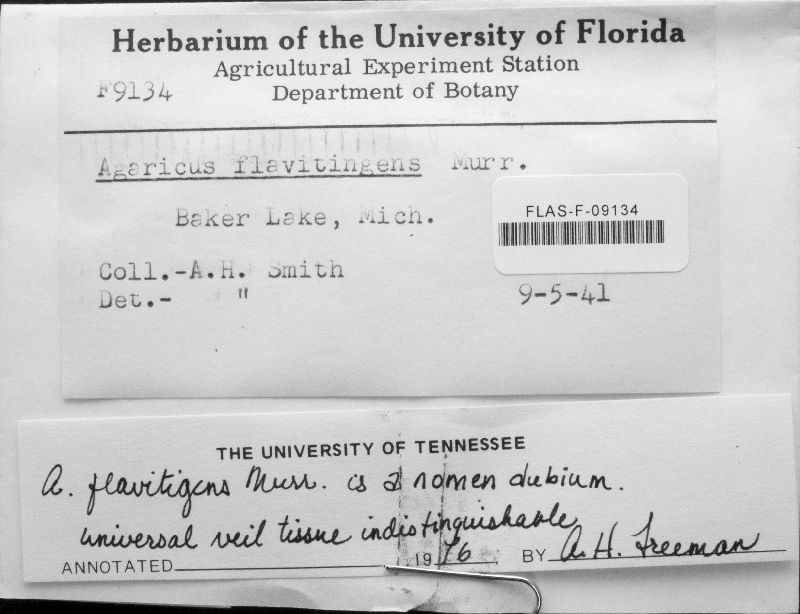 Herbarium of the University of Florida
Agricultural Experiment Station
F9134
Department of Botany
Agaricus flavitingens Murr.
Baker Lake, Mich.
FLAS-F-09134
Coll.-A.H. Smith
Det.- "
9-5-41
THE UNIVERSITY OF TENNESSEE
A. flavitigens Murr. is a nomen dubium.
universal veil tissue indistinguishable
ANNOTATED 1976 BY A. H. Freeman